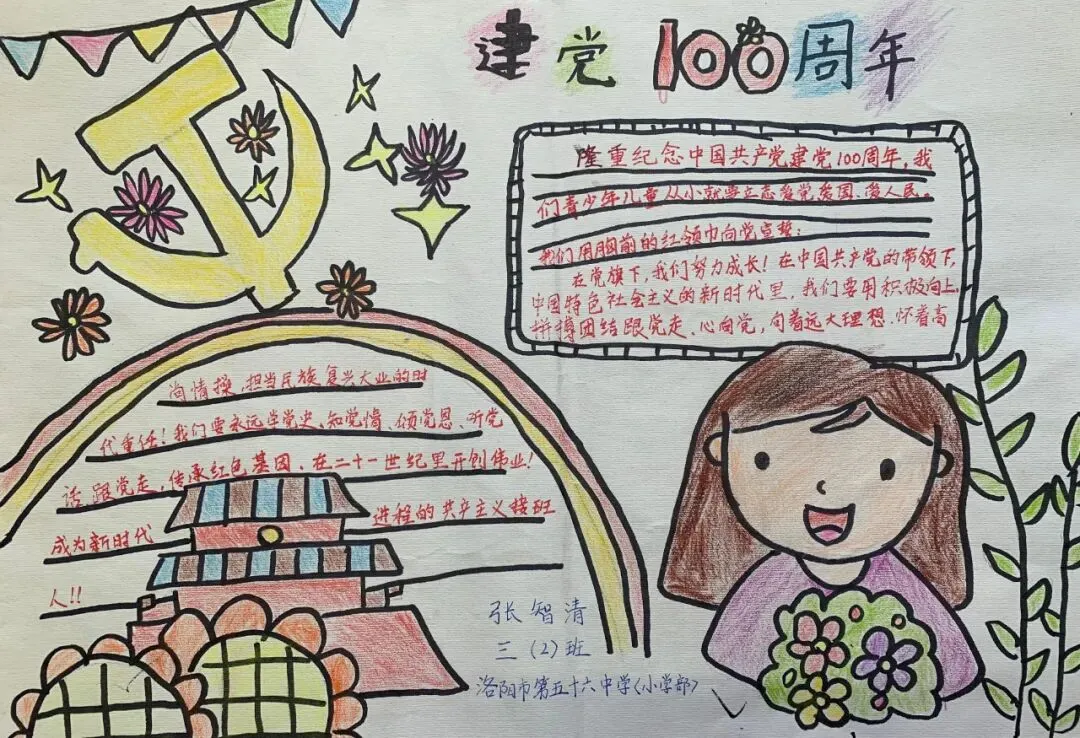 建党100周年
隆重纪念中国共产党建党100周年,我
们青少年儿童从小就要立志爱党爱国、爱人民。
我们用胸前的红领巾向党宣誓:
在党旗下,我们努力成长!在中国共产党的带领下,
中国特色社会主义的新时代里,我们要用积极向上,
拼搏团结跟党走、心向党,向着远大理想、怀着高
尚情操,担当民族复兴大业的时
代重任!我们要永远学党史、知党情、颂党恩、听党
话跟党走,传承红色基因、在二十一世纪里开创伟业!
成为新时代 进程的共产主义接班
人!!
张智清
三(2)班
洛阳市第五十六中学(小学部)